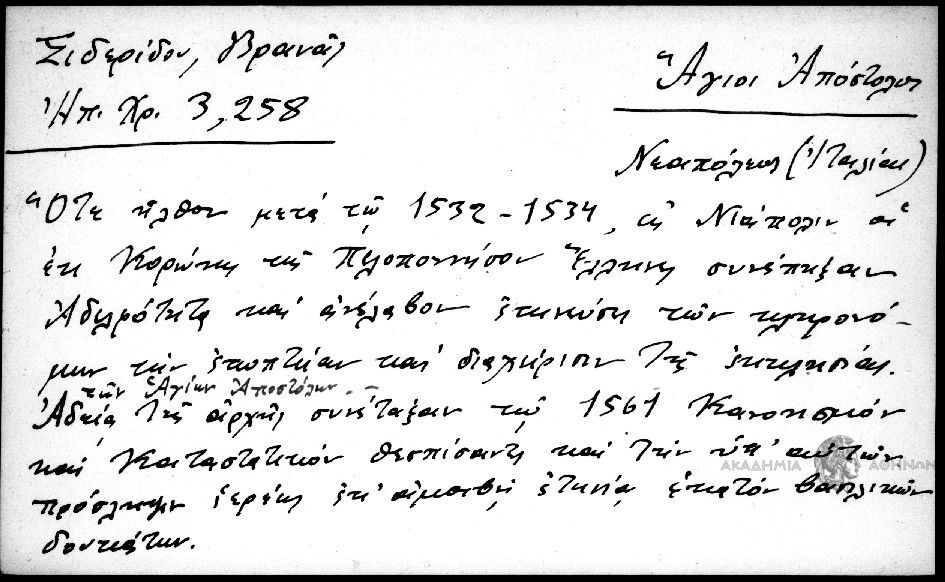 Σιδερίδου, Βρανᾶς
Ἠπ. Χρ. 3,258
Ἅγιοι Ἀπόστολοι
Νεαπόλεως (Ἰταλίας)
Ὅτε ἦλθον μετά τῷ 1532-1534, εἰς Νεάπολιν οἱ
ἐκ Κορώνης τῆς Πελοποννήσου Ἕλληνες συνέπηξαν
Ἀδελφότητα καί ἀνέλαβον τῶν κληρονό-
μων τήν ἐποπτείαν καί διαχείρισιν τῆς ἐκκλησίας.
τῶν Ἁγίων Ἀποστόλων. -
Ἀδείᾳ τῆς ἀρχῆς συνέταξαν τῷ 1561 Κανονισμόν
καί Καταστατικόν θεσπίσαντες καί τήν ὑπ' αὐτῶν
πρόσληψιν ἱερέως ἐπ' ἀμοιβῇ ἐτησίᾳ ἑκατόν βασιλικῶν
δουκάτων.
ΑΚΑΔΗΜΙΑ ΑΘΗΝΩΝ